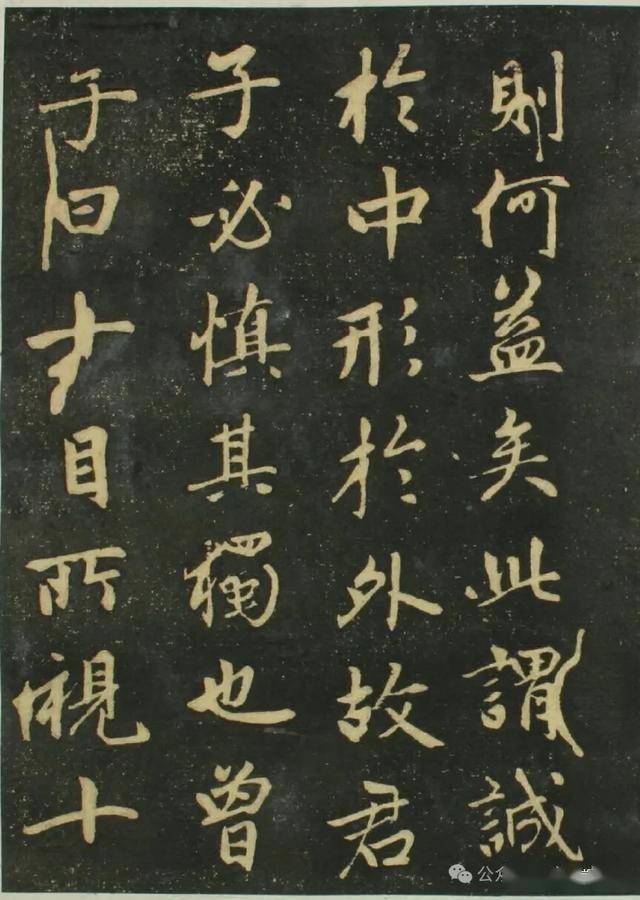 則何益矣此謂誠
於中形於外故君
子必慎其獨也曾
子曰十目所視十
公众